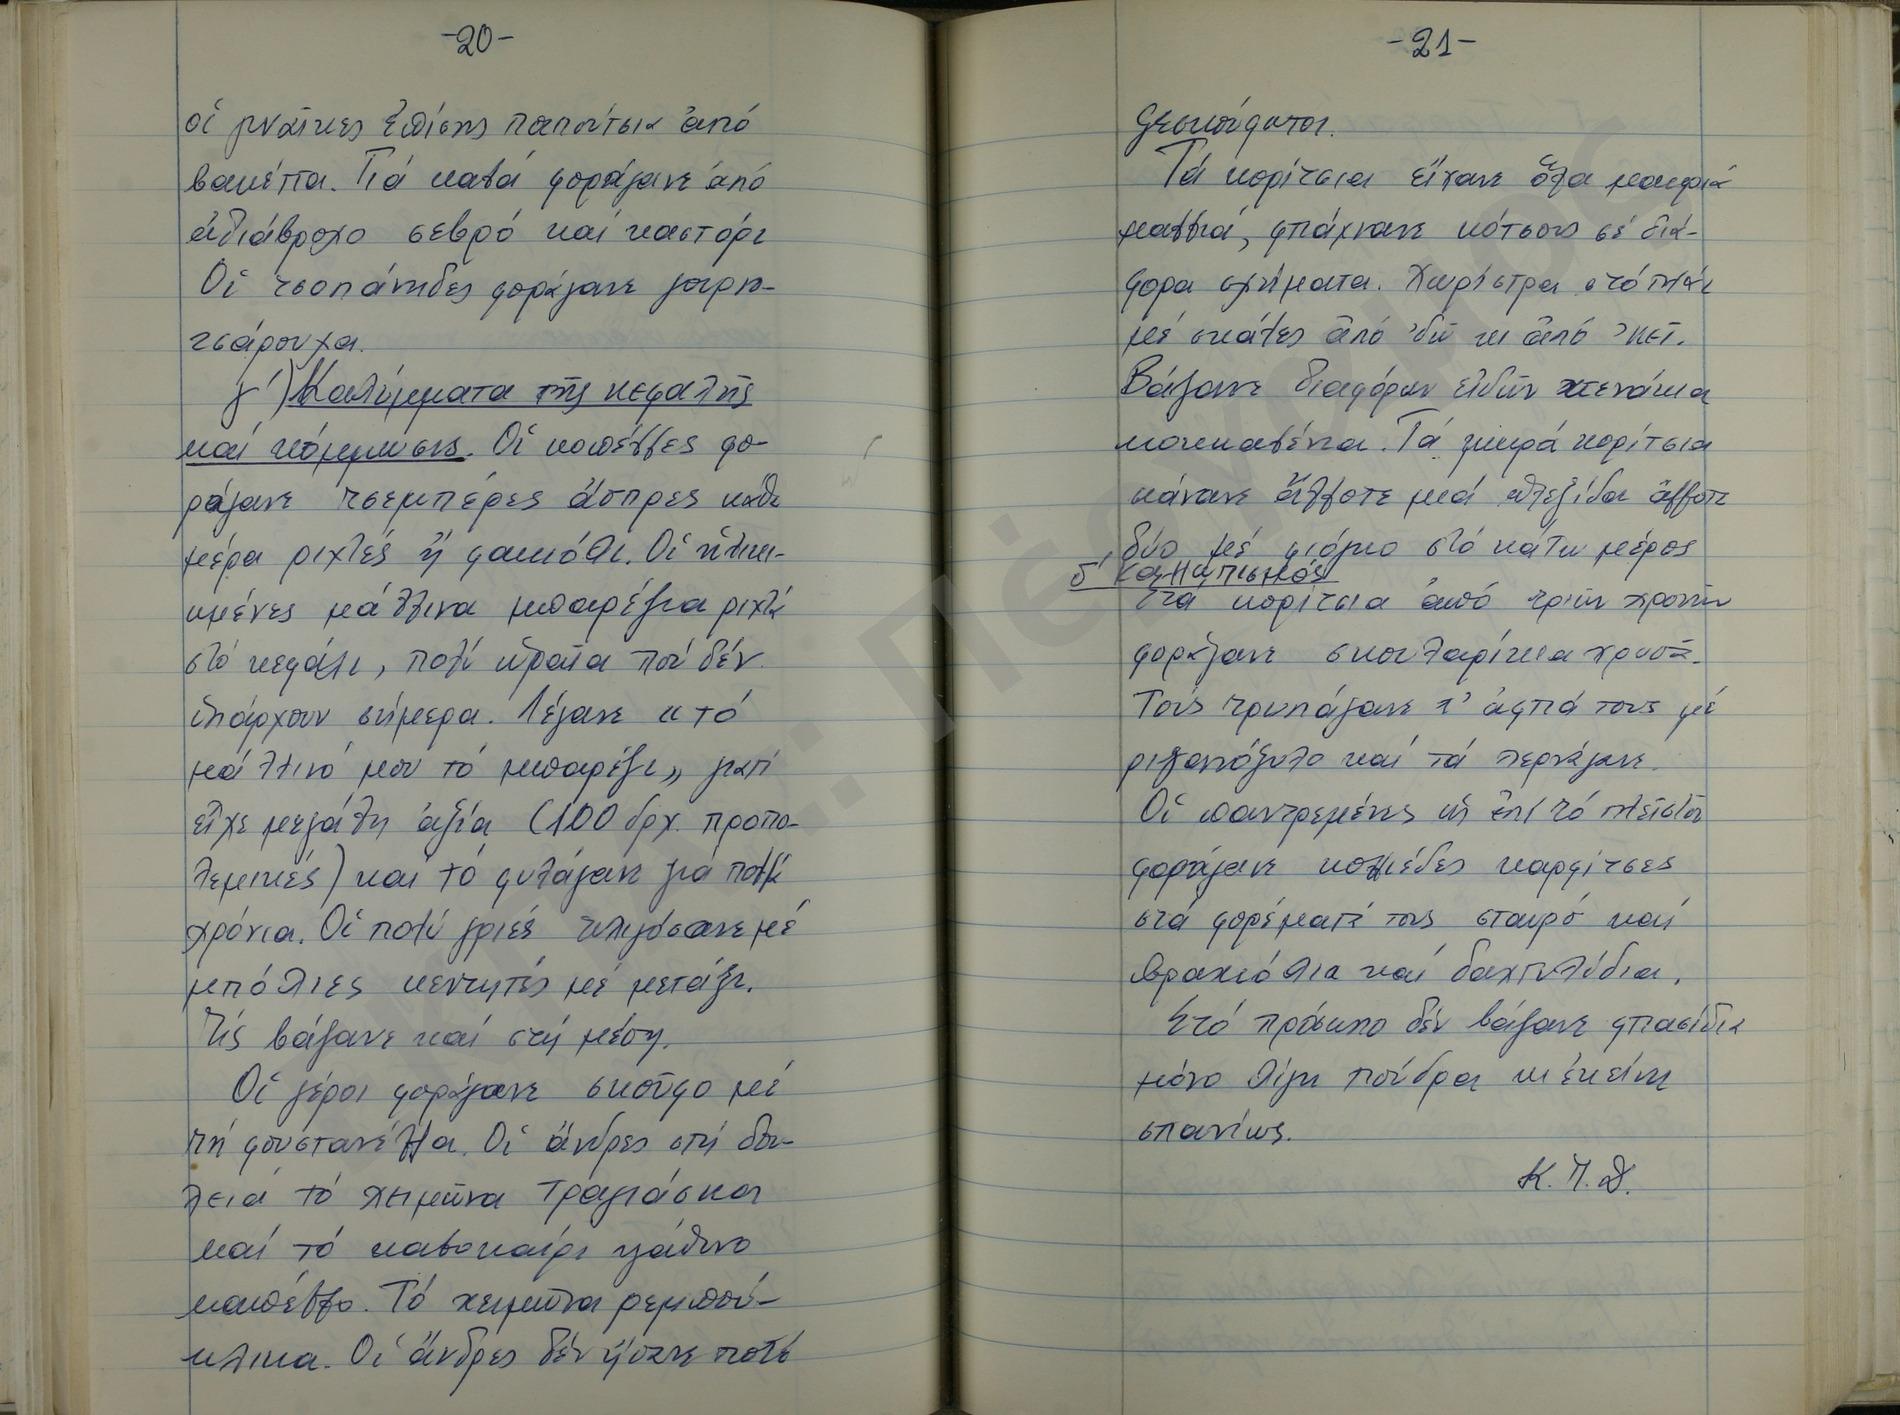 -20-
οἱ γυναῖκες ἐπίσης παπούτσια ἀπό
βακέττα. Γιά καλά φοράγανε ἀπό
ἀδιάβροχο σεβρό καί καστόρι
Οἱ τσοπάνηδες φοράγανε γουρνο-
τσάρουχα.
γ') Καλύμματα τῆς κεφαλῆς
καί κόμμωσις. Οἱ κοπέλλες φο-
ράγανε τσεμπέρες ἄσπρες κάθε
μέρα ριχτές ἤ φακιόλι. Οἱ ἡλικι-
ωμένες μάλλινα μπαρέζια ριχτά
στό κεφάλι, πολύ ὡραῖα πού δέν
ὑπάρχουν σήμερα. Λέγανε "τό
μάλλινό μου τό μπαρέζι" γιατί
εἶχε μεγάλη ἀξία (100 δρχ. προπο-
λεμικές) καί τό φυλάγανε γιά πολλά
χρόνια. Οἱ πολύ γριές τυλιγόσανε μέ
μπόλιες κεντητές μέ μετάξι.
Τίς βάζανε καί στή μέση.
Οἱ γέροι φοράγανε σκοῦφο μέ
τή φουστανέλλα. Οἱ ἄνδρες στή δου-
λειά τό χειμῶνα τραγιάσκα
καί τό καλοκαίρι ψάθινο
καπέλλο. Τό χειμῶνα ρεμπού-
μπλικα. Οἱ ἄνδρες δέν ἤσανε ποτέ
-21-
ξεσκούφωτοι.
Τά κορίτσια εἴχανε ὅλα μακρυά
μαλλιά, φτιάχνανε κότσους σέ διά-
φορα σχήματα. Χωρίστρα στό πλάι
μέ σκάλες ἀπό 'δῶ κι ἀπό 'κεῖ.
Βάζανε διαφόρων εἰδῶν χτενάκια
κοκκαλένια. Τά μικρά κορίτσια
κάνανε ἄλλοτε μιά πλεξίδα ἄλλοτε
δύο μέ φιόγκο στό κάτω μέρος
δ' Καλλωπισμός
Στά κορίτσια ἀπό τριῶν χρονῶν
φοράγανε σκουλαρίκια χρυσᾶ.
Τούς τρυπάγανε τ' ἀφτιά τους μέ
ριγανόξυλο καί τά περνάγανε.
Οἱ παντρεμένες ὡς ἐπί τό πλεῖστον
φοράγανε κολλιέδες καρφίτσες
στά φορέματά τους σταυρό καί
βραχιόλια καί δαχτυλίδια.
Στό πρόσωπο δέν βάζανε φτιασίδια
μόνο λίγη πούδρα κι ἐκείνη
σπανίως.
Κ. Π. Δ.